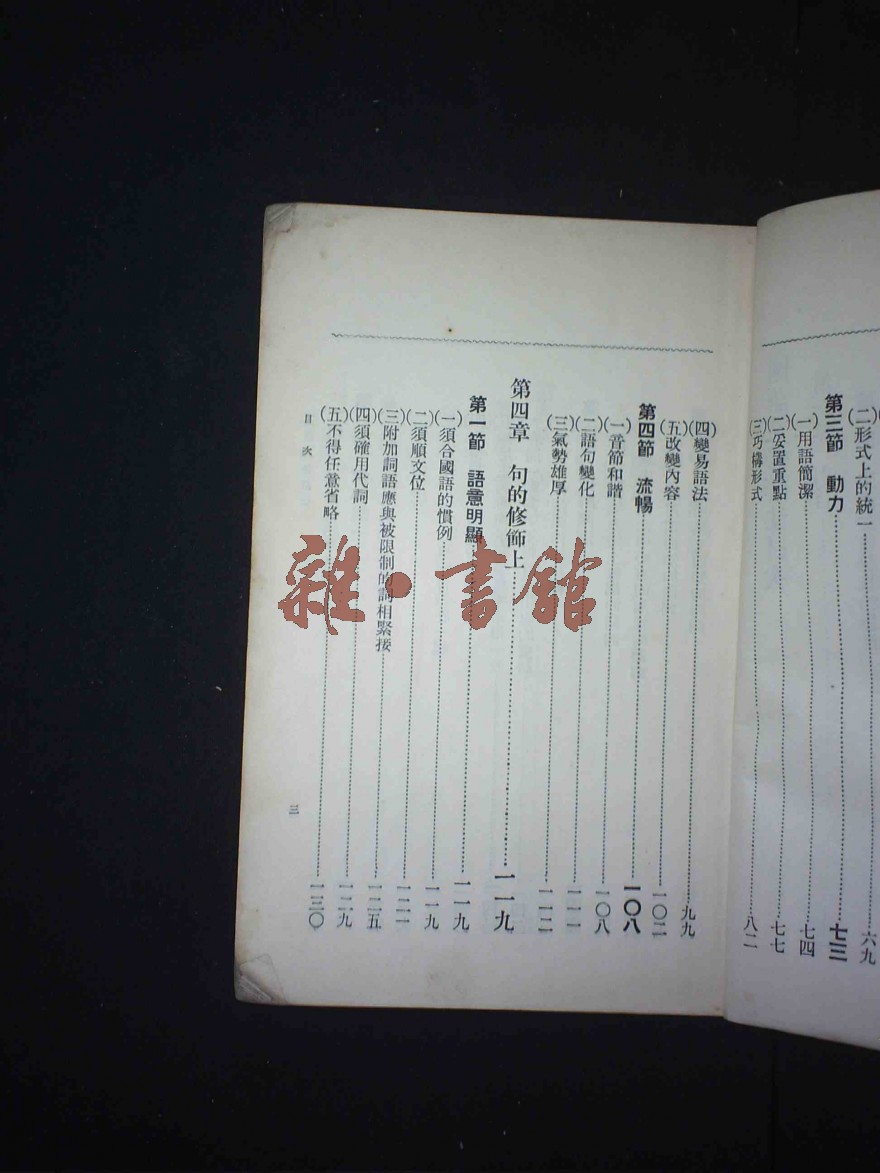 (二)形式上的統一……六九
第三節 動力……七三
(一)用語簡潔……七四
(二)妥置重點……七七
(三)巧構形式……八二
(四)變易語法……九九
(五)改變內容……一〇二
第四節 流暢……一〇八
(一)音節和諧……一〇八
(二)語句變化……一一一
(三)氣勢雄厚……一一二
第四章 句的修飾上……一一九
第一節 語意明顯……一一九
(一)須合國語的慣例……一一九
(二)須順文位……一二一
(三)附加詞語應與被限制的詞相緊接……一二五
(四)須確用代詞……一二九
(五)不得任意省略……一三〇
目次
三
雜·書館